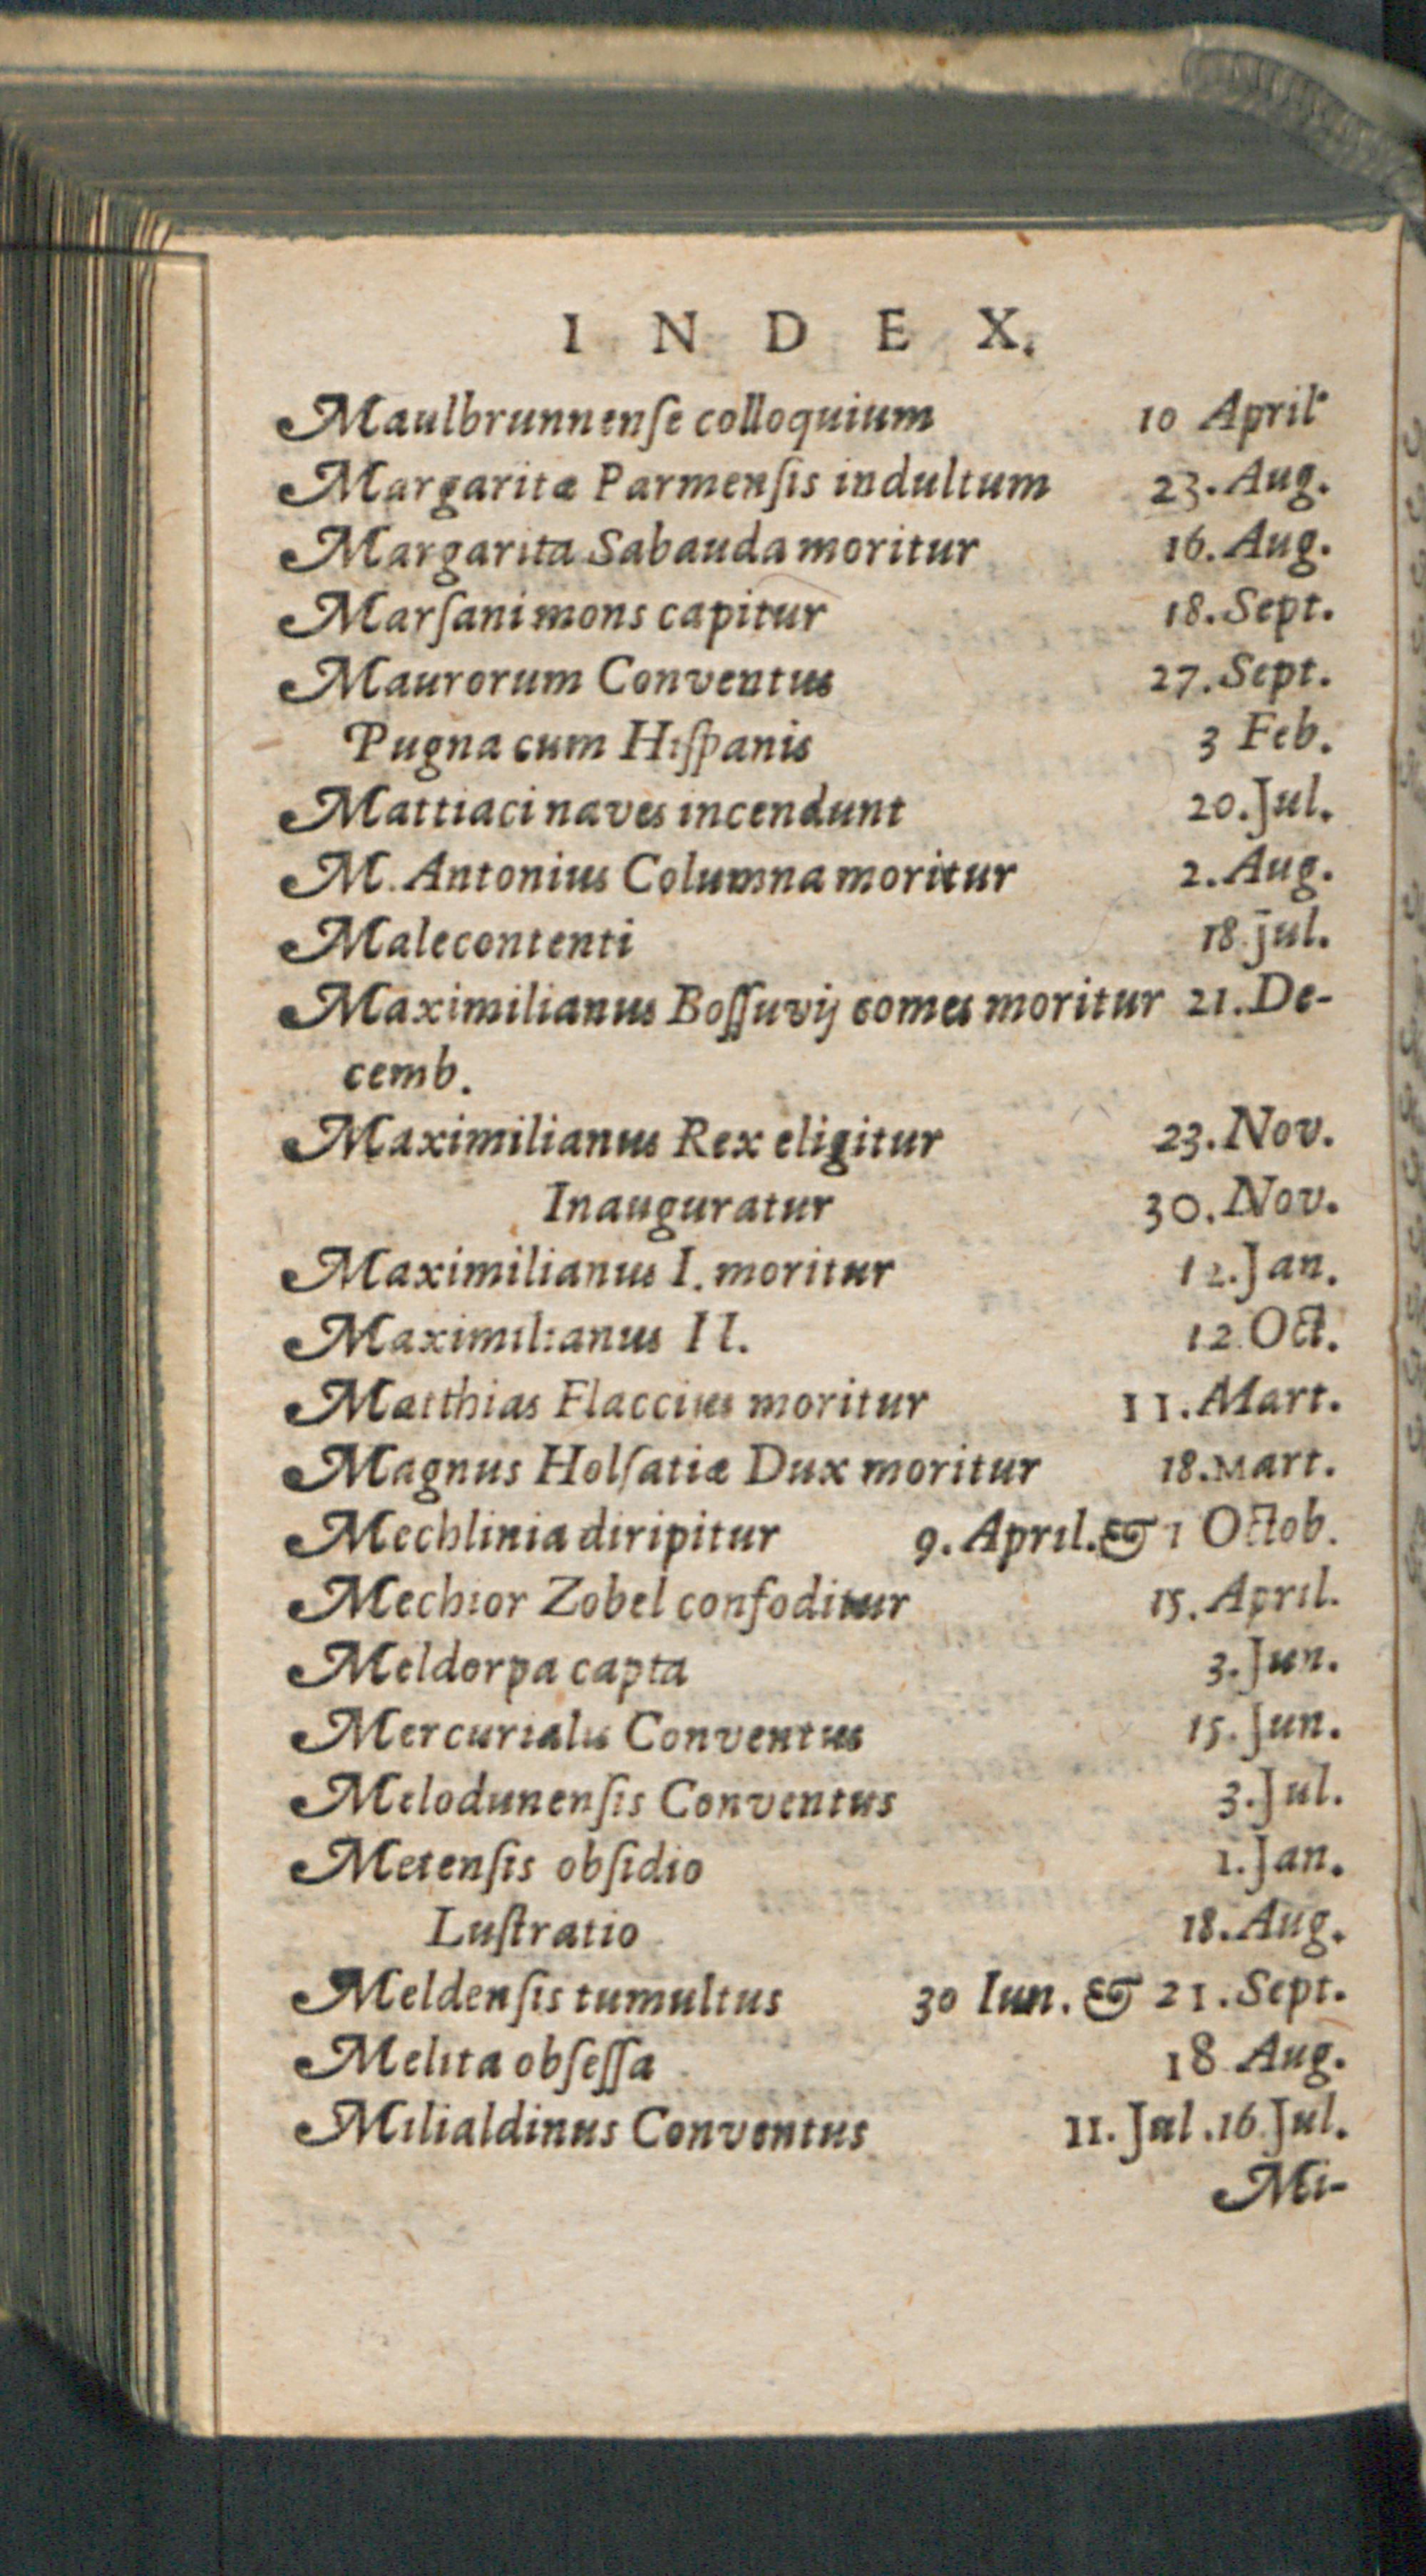 INDEX.
Maulbrunnenſe colloquium 10 April
Margaritæ Parmenſis indultum 23. Aug.
Margarita Sabauda moritur 16. Aug.
Marſani mons capitur 18. Sept.
Maurorum Conventus 27. Sept.
Pugna cum Hiſpanis 3 Feb.
Mattiaci naves incendunt 20. Jul.
M. Antonius Columna moritur 2. Aug.
Malecontenti 18. jul.
Maximilianus Boſſuvij comes moritur 21. De-
cemb.
Maximilianus Rex eligitur 23. Nov.
Inauguratur 30. Nov.
Maximilianus I. moritur 12. Jan.
Maximilianus II. 12 Oct.
Matthias Flaccius moritur 11. Mart.
Magnus Holſatiæ Dux moritur 18. Mart.
Mechlinia diripitur 9. April. & 1 Octob.
Mechior Zobel confoditur 15. April.
Meldorpa capta 3. Jun.
Mercurialis Conventus 15. Jun.
Melodunenſis Conventus 3. Jul.
Metenſis obſidio 1. Jan.
Luſtratio 18. Aug.
Meldenſis tumultus 30 Iun. & 21. Sept.
Melita obſeſſa 18 Aug.
Milialdinus Conventus 11. Jul. 16. Jul.
Mi-